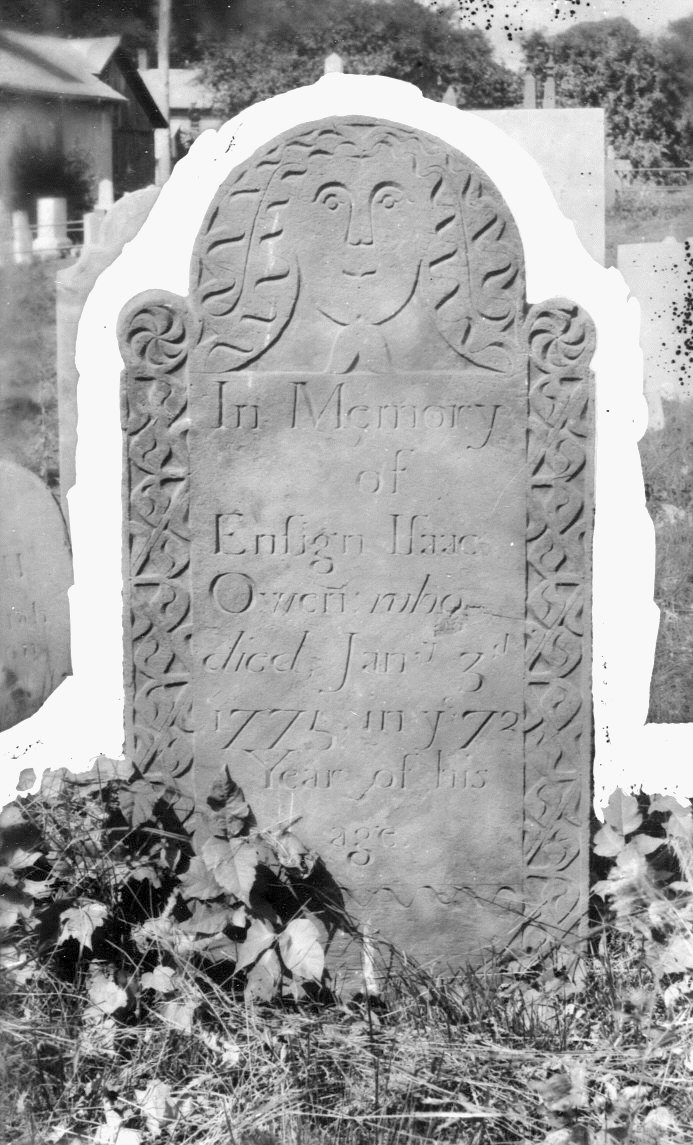 In Memory
of
Enſign Iſaac
Owen who
died, Janʳʸ 3ʳᵈ
1775 in yᵉ 72
Year of his
age.